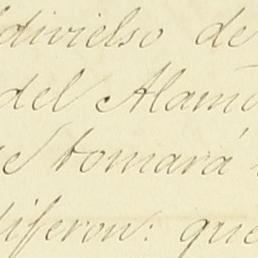 divielso de
del Alamo
se tomará
diferon: que